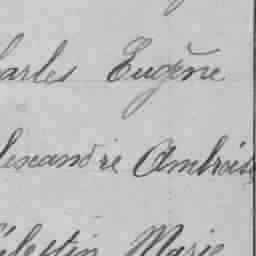 harles Eugène
lexandre Ambrois
élestin Marie